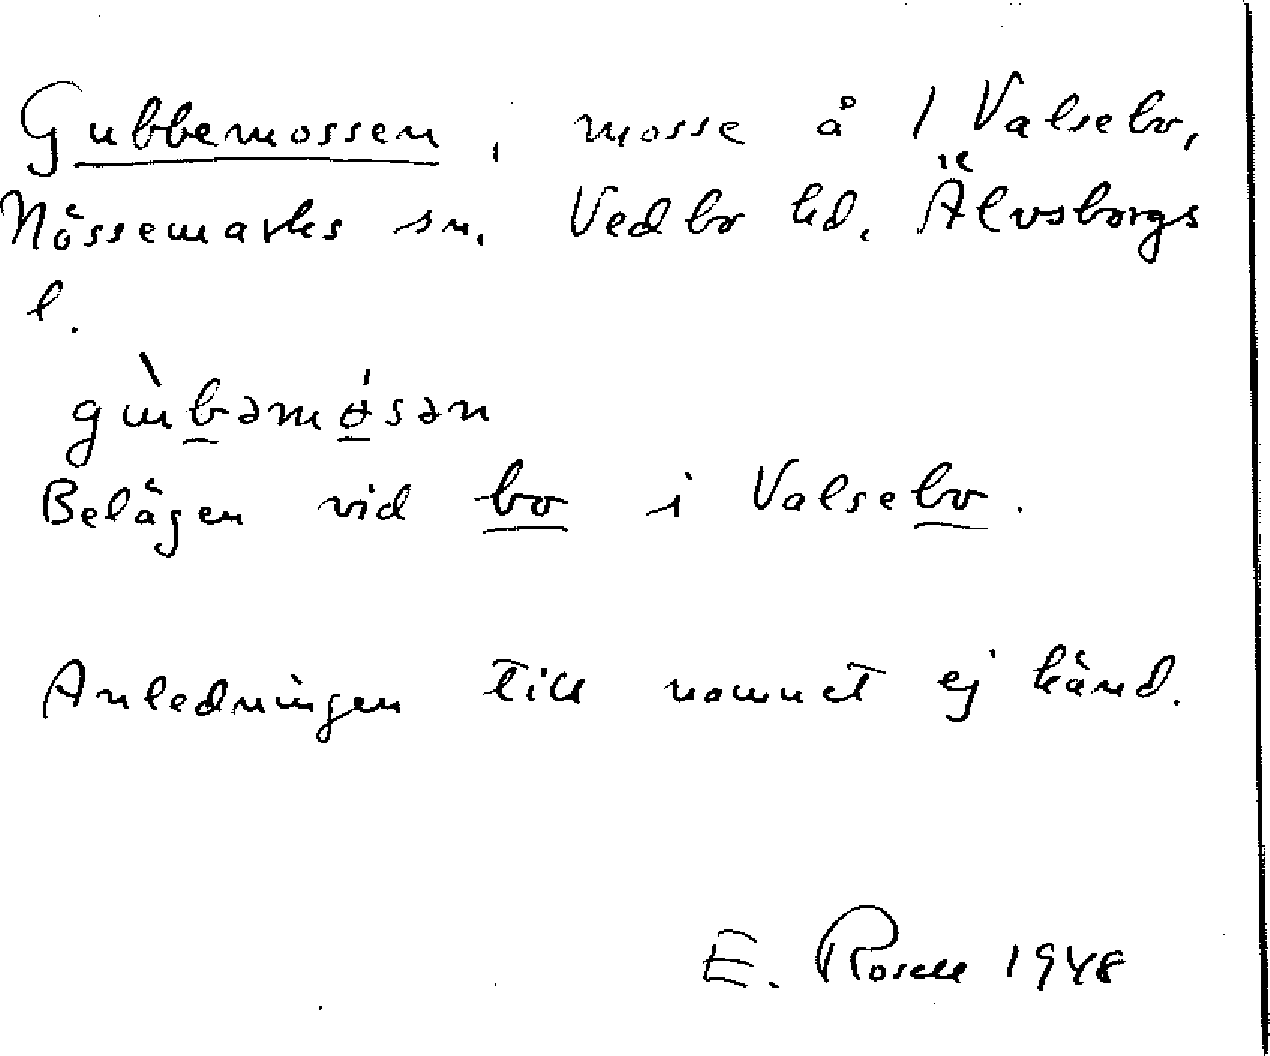 Gubbemossen, mosse å 1 Valsebo,
Nössemarks sn. Vedbo hd. Älvsborgs
l.
gùb̲əmɵ̲́sən
Belägen vid bo i Valsebo.
Anledningen till namnet ej känd.
E. Rosell 1948